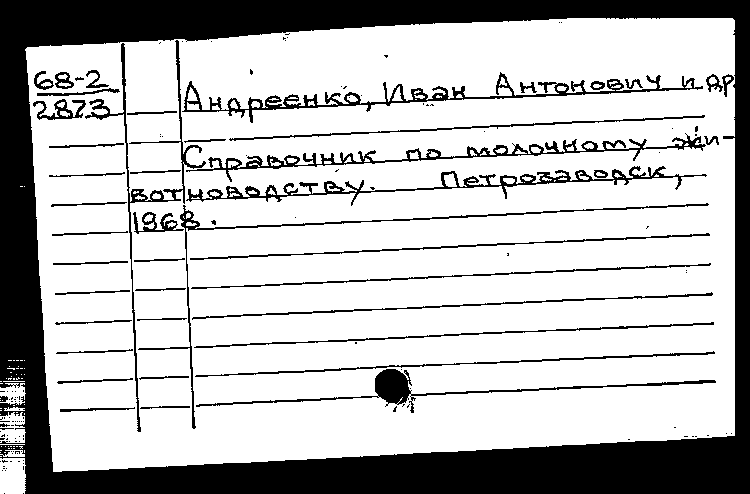 68-2
2873
Андреенко, Иван Антонович и др.
Справочник по молочному жи-
вотноводству. Петрозаводск,
1968.